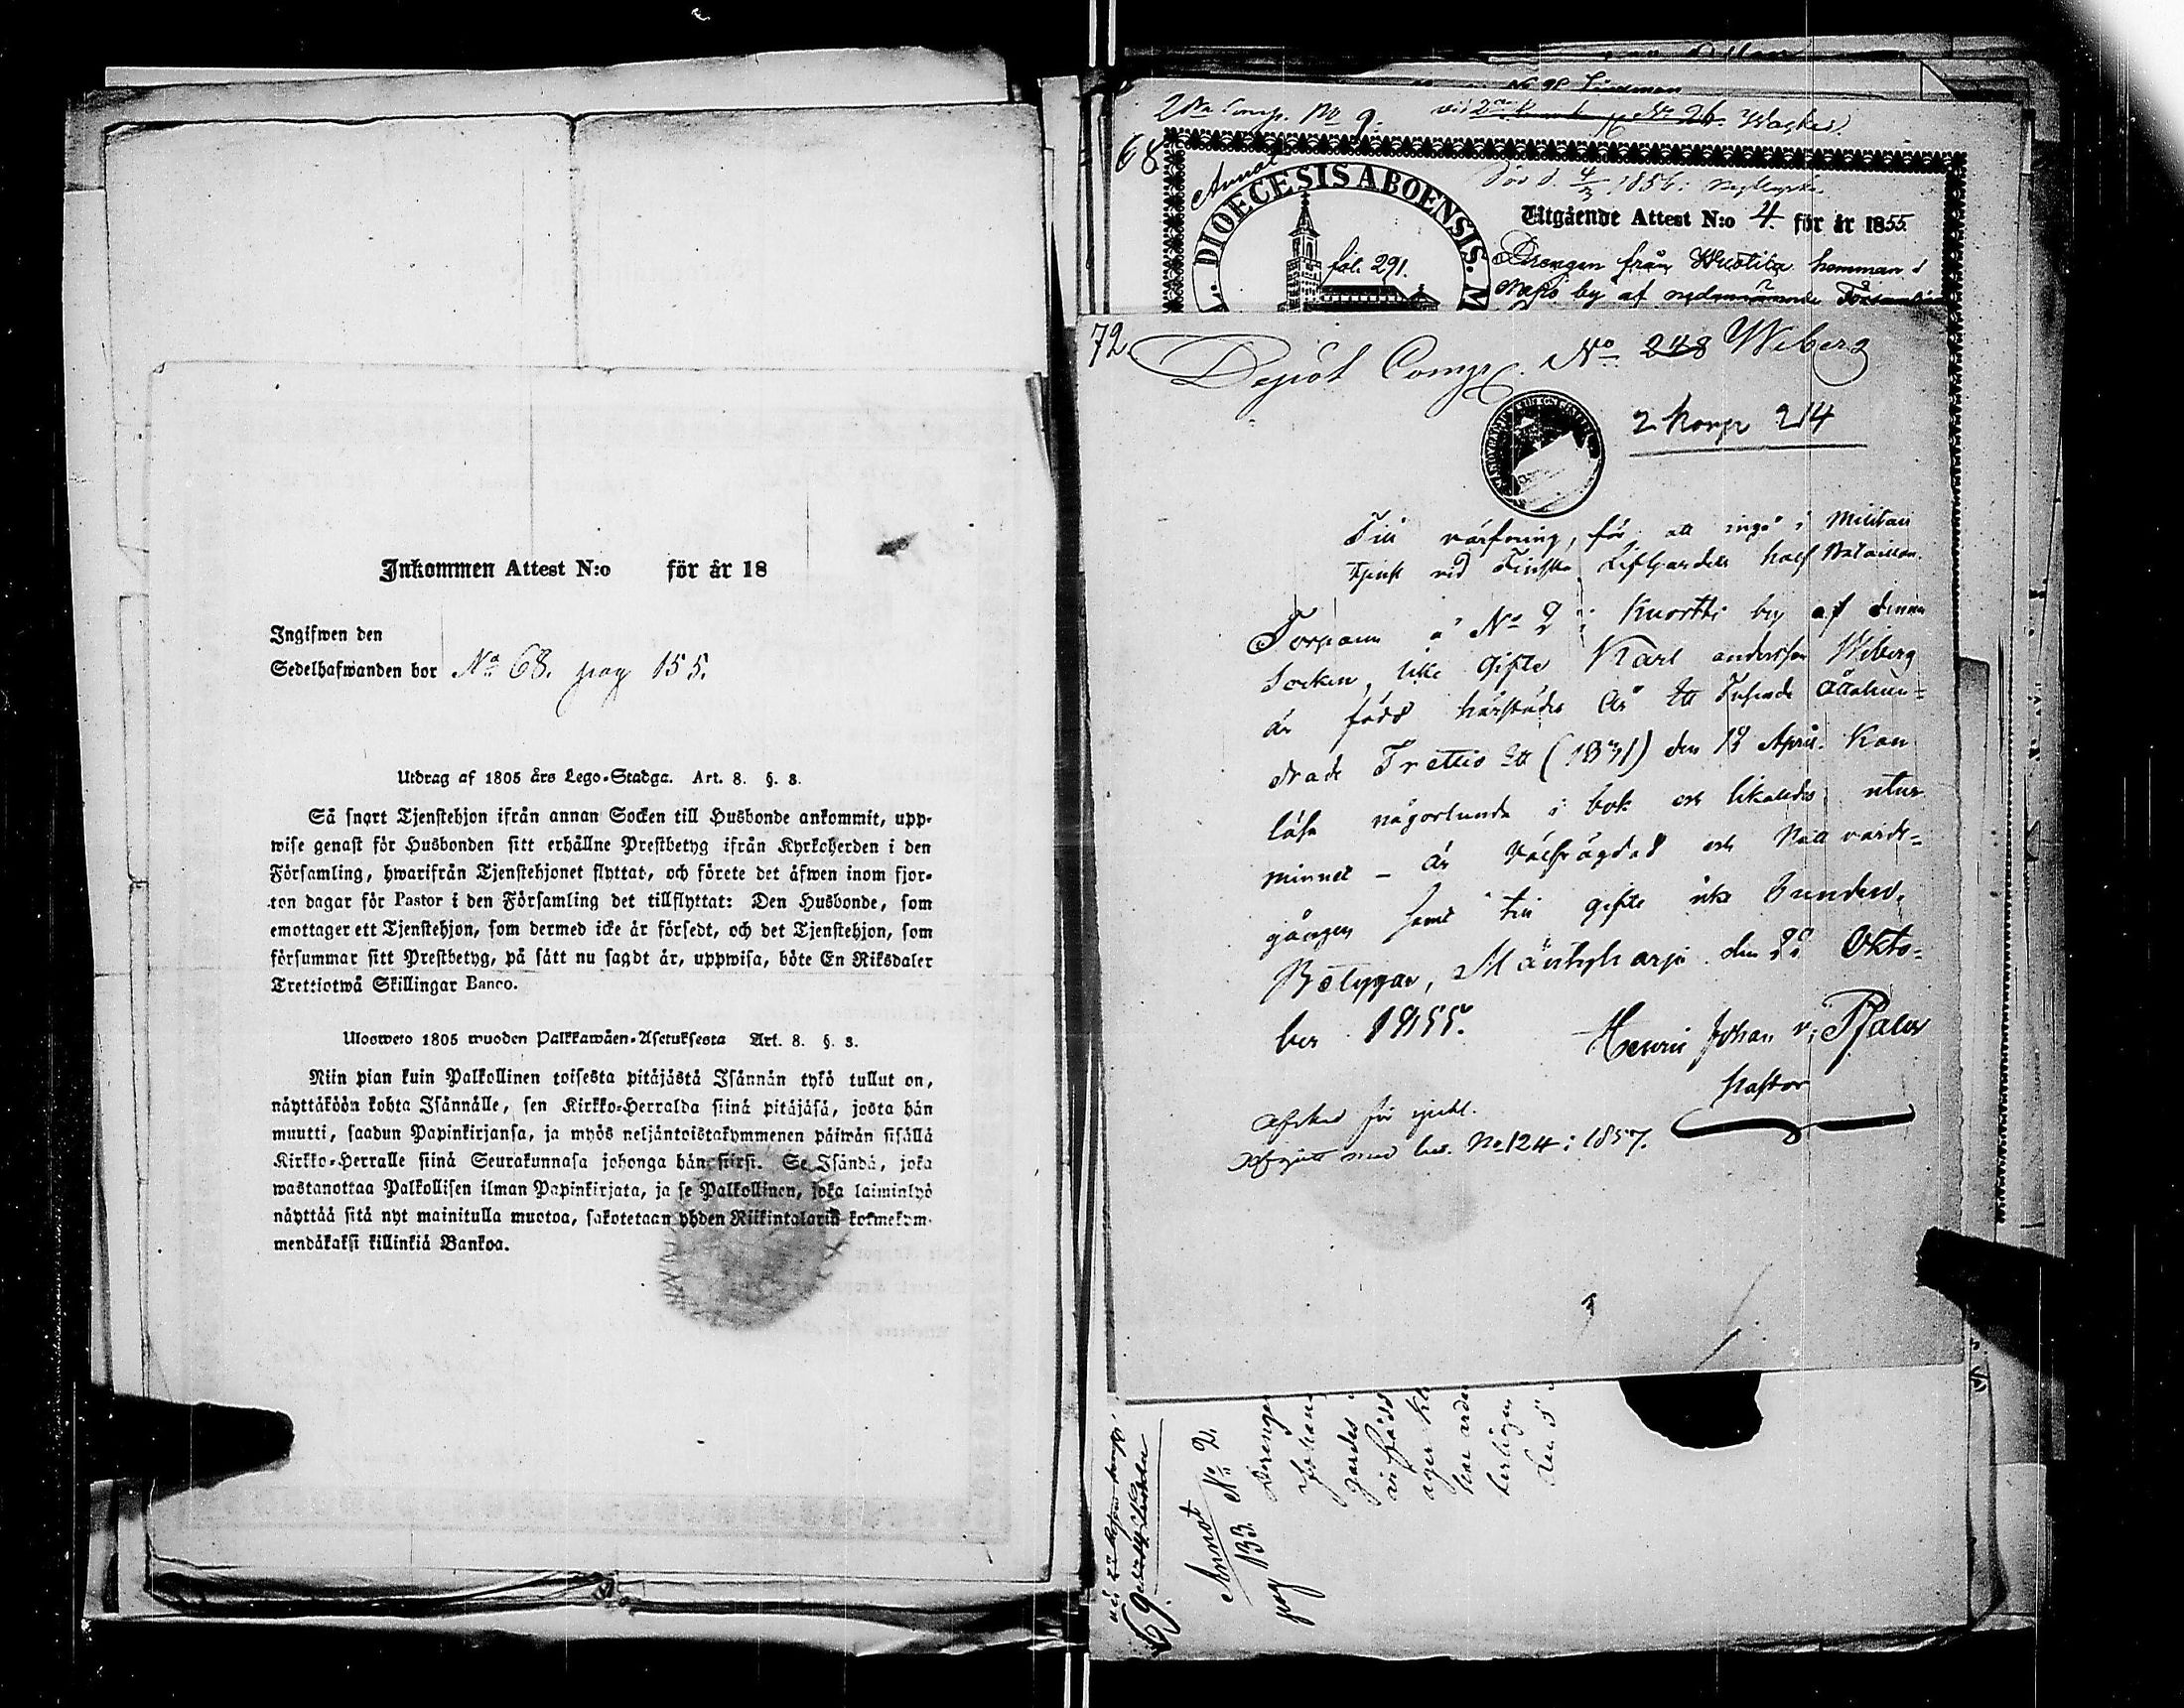 Inkommen Attest N:o för år 18
Ingifwen den
Sedelhafwanden bor No 68. pag 155.
Utdrag af 1805 års Lego-Stadga. Art. 8. §. 3.
Så snart Tjenstehjon ifrån annan Socken till Husbonde ankommit, upp-
wise genast för Husbonden sitt erhållne Prestbetyg ifrån Kyrkoherden i den
Församling, hwarifrån Tjenstehjonet flyttat, och förete det äfwen inom fjor-
ton dagar för Pastor i den Församling det tillflyttat: Den Husbonde, som
emottager ett Tjenstehjon, som dermed icke är försedt, och det Tjenstehjon, som
försummar sitt Prestbetyg, på sätt nu sagdt är, uppwisa, böte En Riksdaler
Trettiotwå Skillingar Banco.
Ulosweto 1805 wuoden Palkkawäen-Asetuksesta Art. 8. §. 3.
Niin pian kuin Palkollinen toisesta pitäjästä Isännän tykö tullut on,
näyttäköön kohta Isännälle, sen Kirkko-Herralda siinä pitäjäsä, josta hän
muutti, saadun Papinkirjansa, ja myös neljäntoistakymmenen päiwän sisällä
Kirkko-Herralle siinä Seurakunnasa johonga hän siirsi. Se Isändä, joka
wastanottaa Palkollisen ilman Papinkirjata, ja se Palkollinen, joka laiminlyö
näyttää sitä nyt mainitulla muotoa, sakotetaan yhden Riikintalarin kolmekym-
mendäkaksi killinkiä Bankoa.
2dra Comp. No 9. vid No 26. Wacker.
68
Annot
DIOECESIS ABOENSIS. M
fol. 291.
Död d. 4/3 1856:
Utgående Attest N:o 4. för år 1855
Drengen från hemman i
by af
72
Depôt Comp. No 248 Weberg
2 Komp 214
Till värfning, för att ingå i Militair
tjenst vid Finska Lifgardets half Bataillon.
Torparen å No 2 i Knortti by af denna
Socken, icke Gifte Karl andersson Weberg
är född härstädes År Ett Tusende Åttahun-
drade Trettio Ett (1831) den 19 April. Kan
läsa någorlunda i bok och likaledes utur
minnet – är Välfrägdad och Nattvards-
gången samt till gifte icke bunden.
Betygar, Mäntyharju den 22 Okto-
ber 1855. Henric Johan v: Pfaler
Pastor
Afsked för sjukl.
Afgått med bev. No 124 i 1857.
69
Annot
pag 133 No 2.
Drengen
Johan
är född
den 5